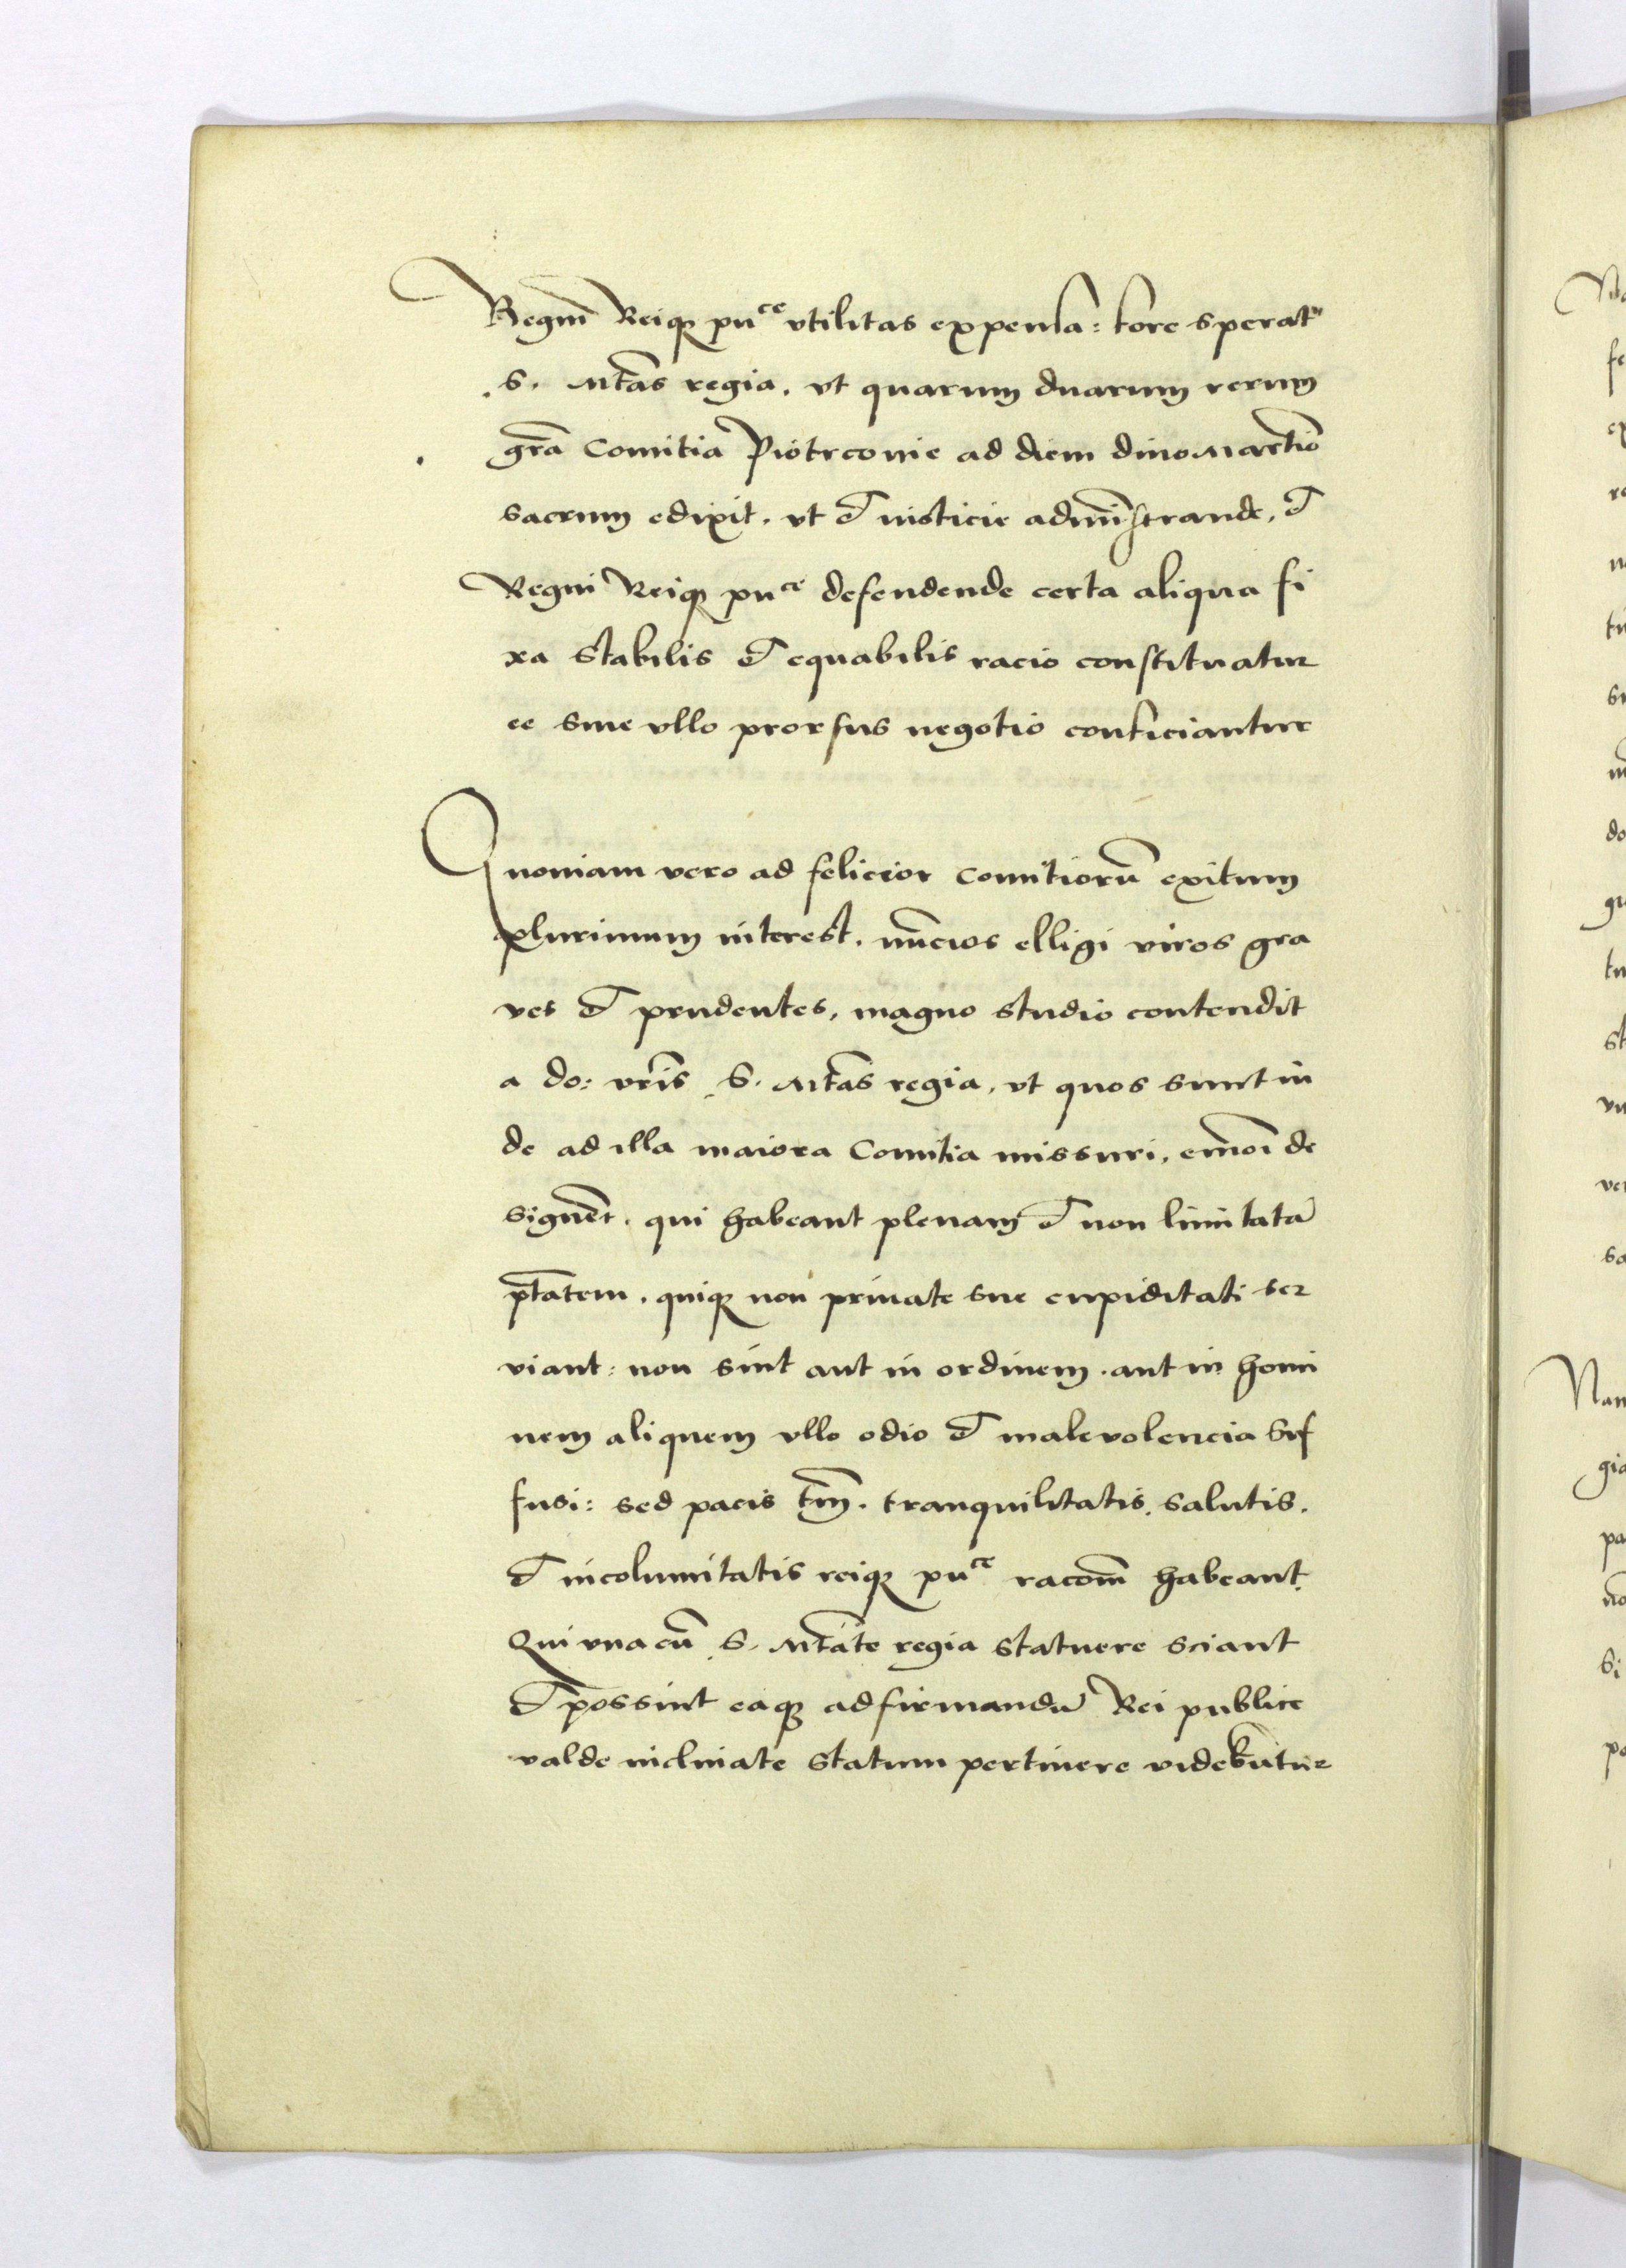 Regni Reiq; pu^ce vtilitas expensa: fore sperat
S. Mtās regia. vt quarum duarum rerum
grā Comitia Piotrconie ad diem diuo Martiō
sacrum edixit. vt et iusticie administrande, et
Regni Reiq; pu^ce defendende certa aliqua fi
xa stabilis et equabilis racio constituatur
ee sine vllo prorsus negotio conficiantur
Quoniam vero ad felicior comitiorū exitum
plurimum interest. nūcios elligi viros gra
ves et prudentes, magno studio contendit
a do: vrīs S. Mtās regia, vt quos sunt in
de ad illa maiora Comitia missuri, de
signēt. qui habeant plenam et non limitatā
ptātem. quiq; non priuate sue cupiditati ser
viant: non sint aut in ordinem. aut in homi
nem aliquem vllo odio et malevolencia suf
fusi: sed pacis tm̄. tranquilitatis. salutis.
et incolumitatis reiq; pu^ce racōm habeant.
Qui vna cū S. Mtāte regia statuere sciant
et possint eaq; ad firmandū Rei publice
valde inclinate statum pertinere videbūtur